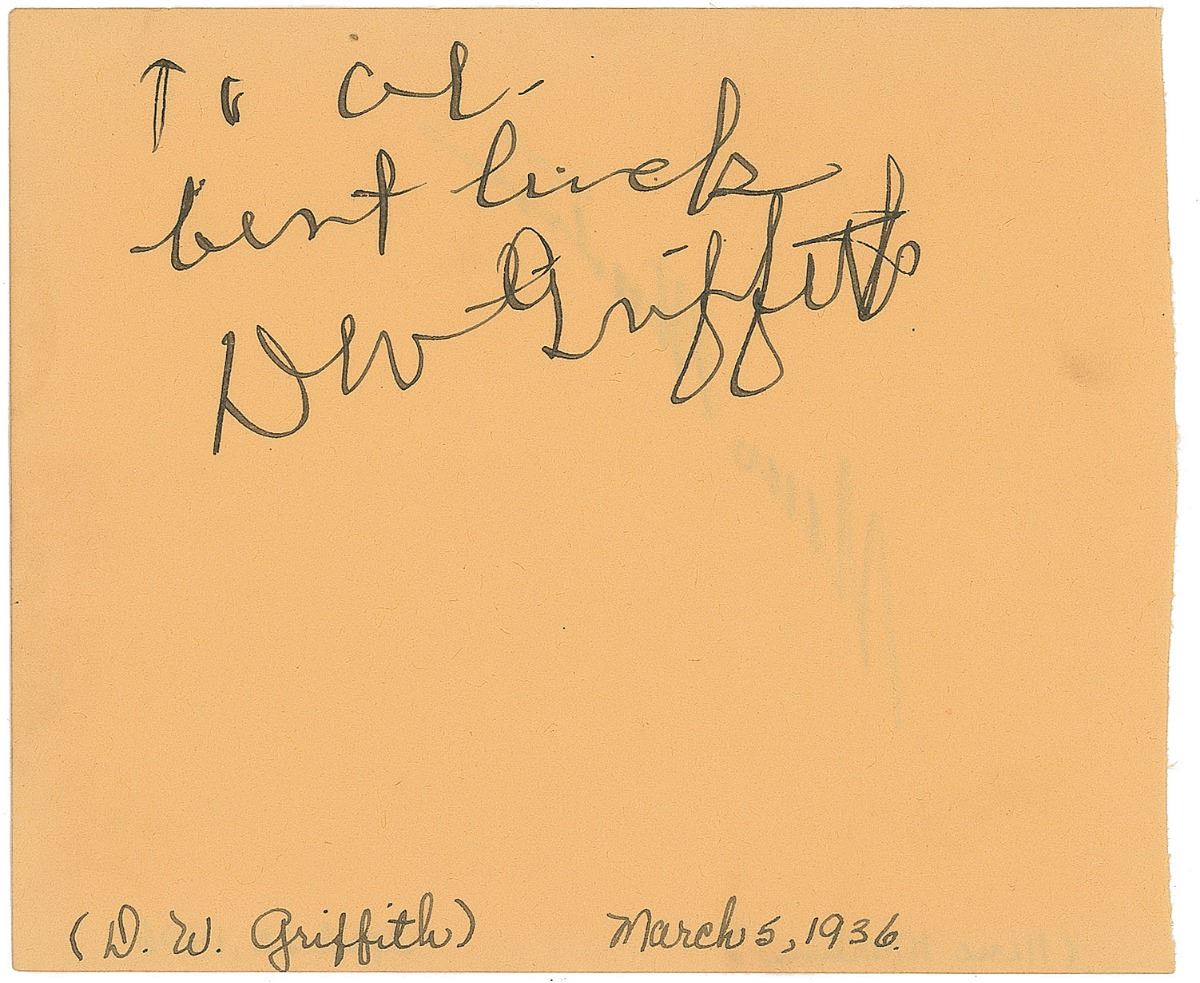 To al-
best luck
DW Griffith
(D. W. Griffith) March 5, 1936.